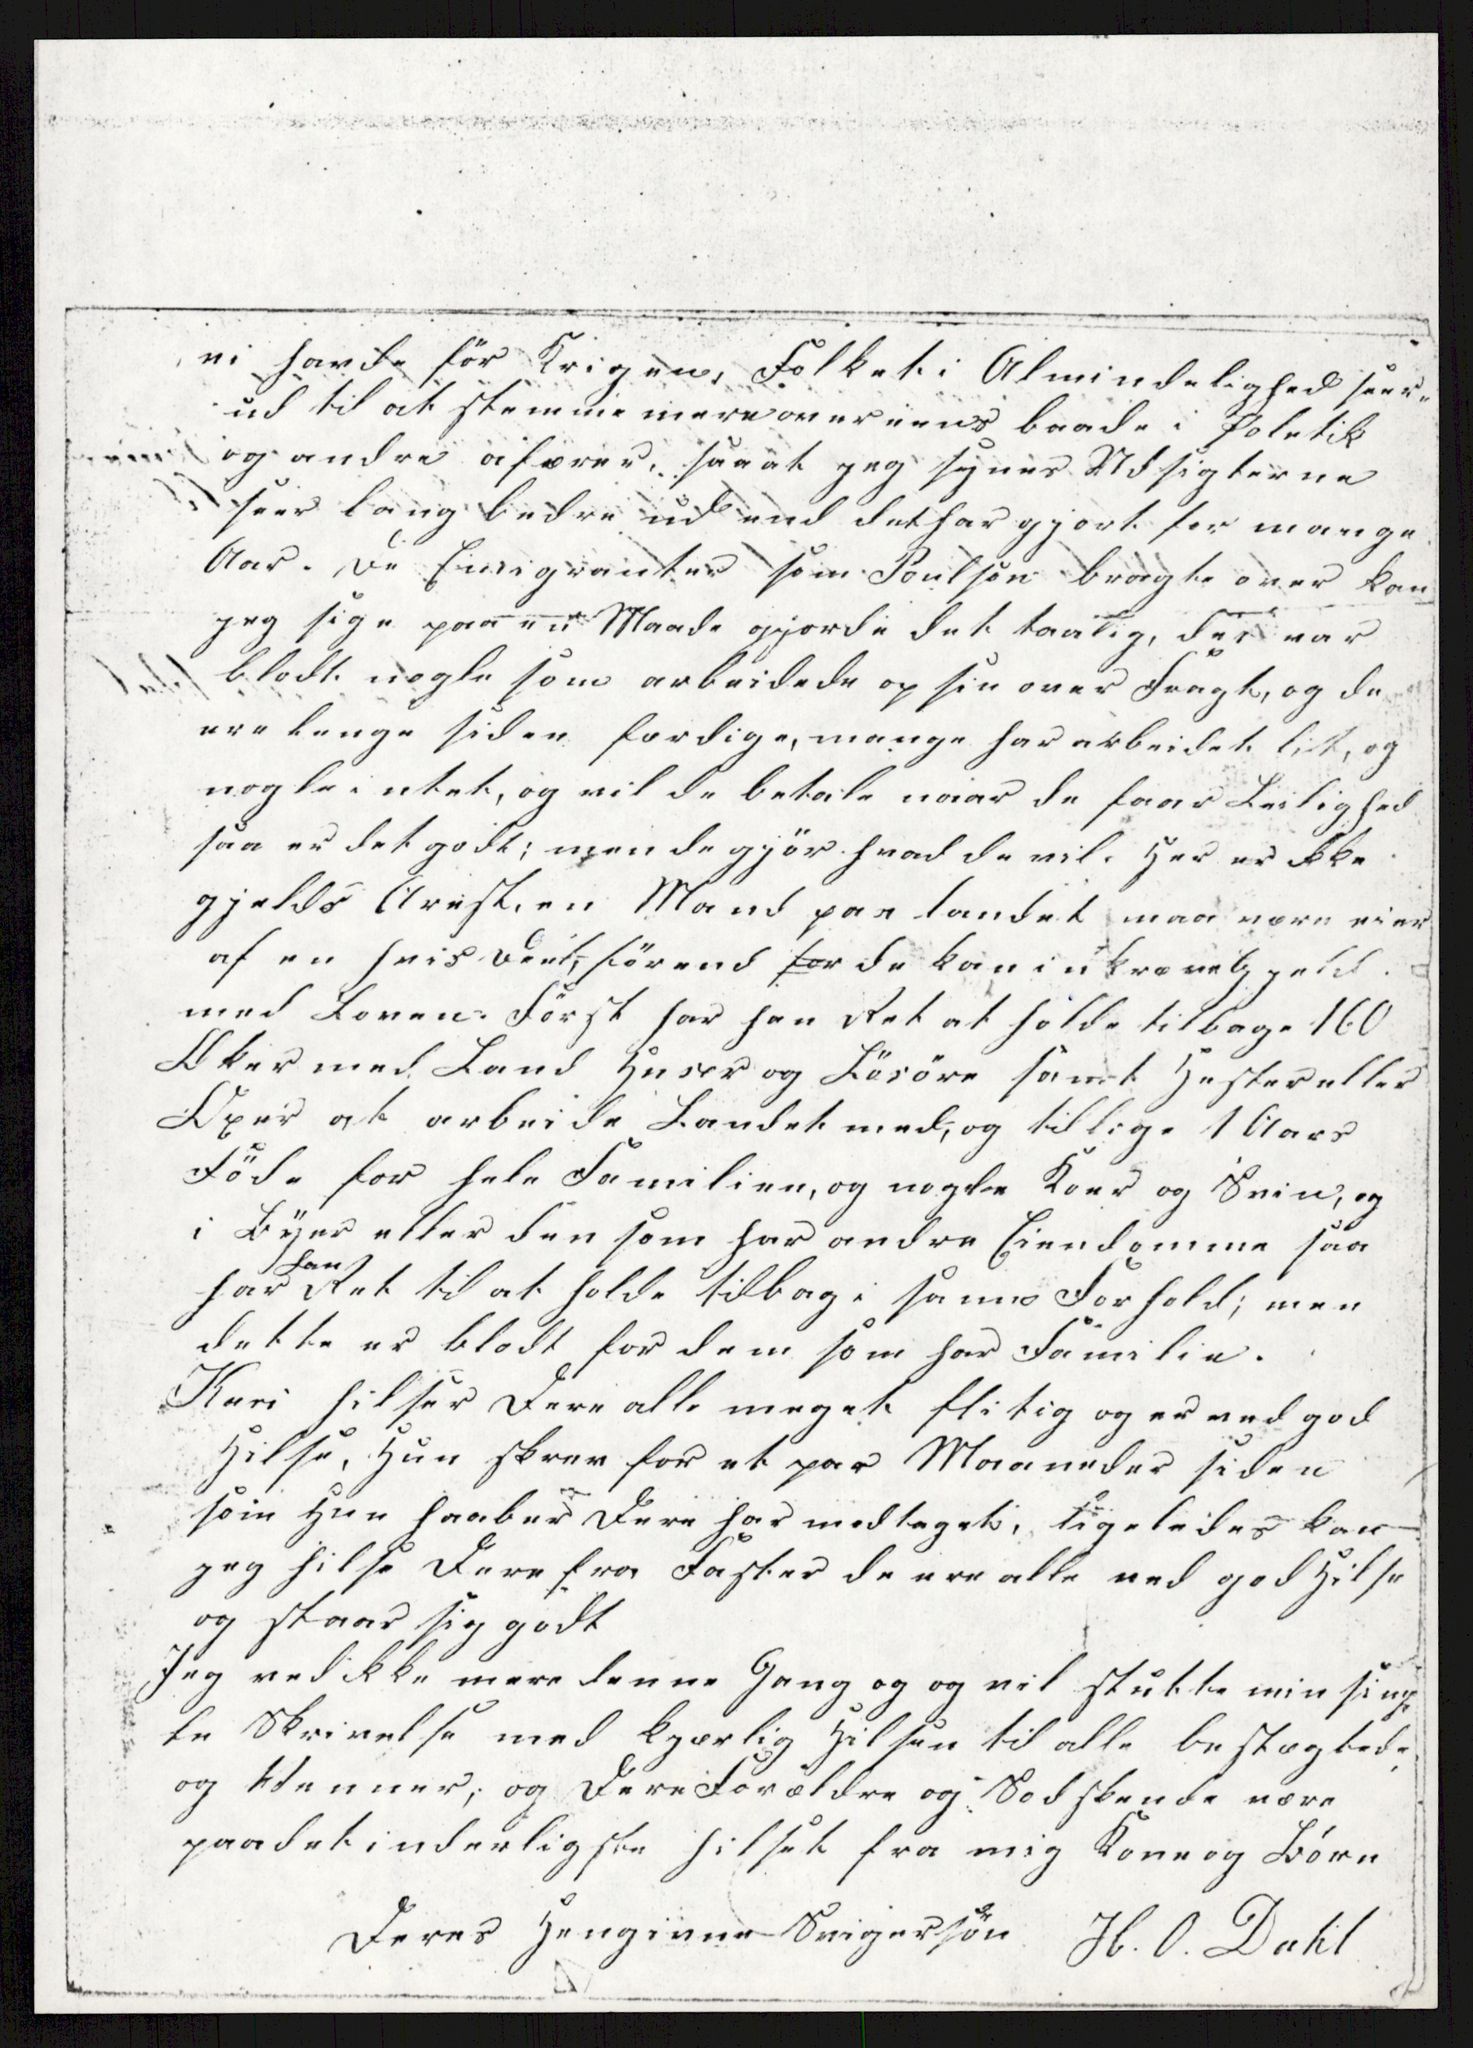 vi havde för Krigen, Folket i Almindelighed seer
ud til at stemme mere overeens baade i Poletik
og andre afærer, saaat jeg synes Udsigterne
seer lang bedre ud end det har gjort for mange
Aar. De Emigranter som Poulson bragte over kan
jeg sige paa en Maade gjorde det taalig, der var
blodt nogle som arbeidede op sin over Fragt, og de
ere lenge siden færdige, mange har arbeidet lit, og
nogle intet, og vil de betale naar de faar Leilighed
saa er det godt; men de gjör hvad de vil. Her er ikke
gjelds Arest, en Mand paa landet maa være eier
af en hvis Deel, förend for de kan inkræve Gjeld
med Loven. Först har han Ret at holde tilbage 160
Aker med Land Huser og Lösöre samt Hester eller
Oxer at arbeide Landet med, og tillige 1 Aars
Föde for hele Familien, og nogle Koer og Svin, og
i Byer eller den som har andre Eiendomme saa
har han Ret til at holde tilbage i same Forhold; men
dette er blodt for dem som har Familie.
Kari hilser Dere alle meget flitig og er ved god
Hilse, Hun skrev for et par Maaneder siden
som Hun haaber Dere har modtaget, ligeledes kan
jeg hilse Dere fra Faster de ere alle ved god Hilse
og staar sig godt
Jeg ved ikke mere denne Gang og og vil slutte min simp
le Skrivelse med kjærlig Hilsen til alle beslægtede
og Venner, og Dere Forældre og Sødskende være
paa det inderligste hilset fra mig Kone og Börn
Deres Hengivne Svigersön H. O. Dahl